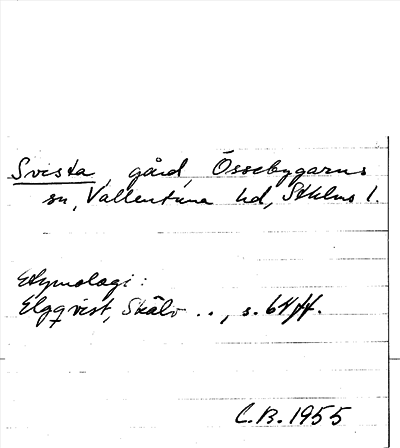 Svista, gård, Össebygarns
sn, Vallentuna hd, Sthlms l.
Etymologi:
Elgqvist, Skälv .., s. 64 ff.
C.B. 1955